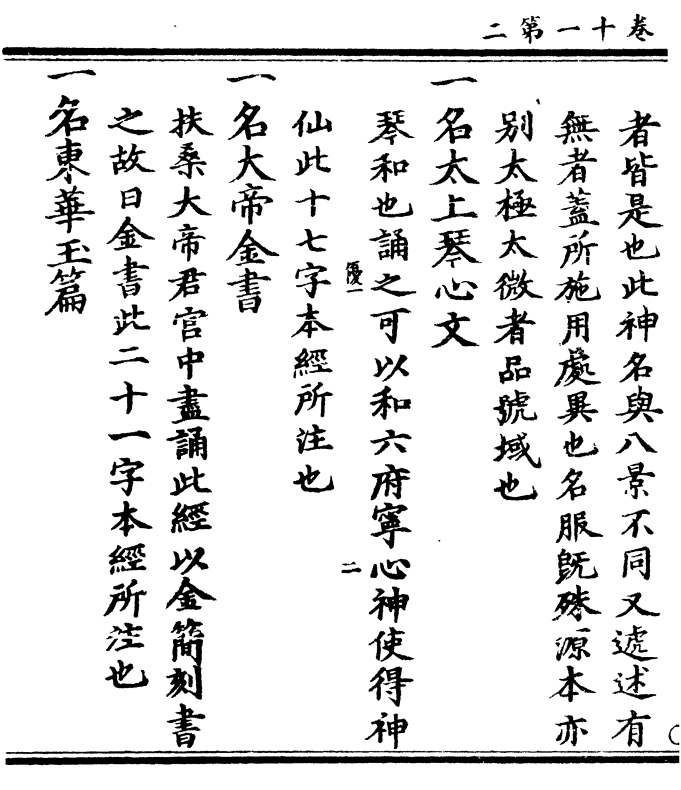 卷十一第二
者皆是也此神名與八景不同又遞述有
無者蓋所施用處異也名服既殊源本亦
別太極太微者品號域也
一名太上琴心文
琴和也誦之可以和六府寧心神使得神
優一
二
仙此十七字本經所注也
一名大帝金書
扶桑大帝君宫中盡誦此經以金簡刻書
之故曰金書此二十一字本經所注也
一名東華玉篇